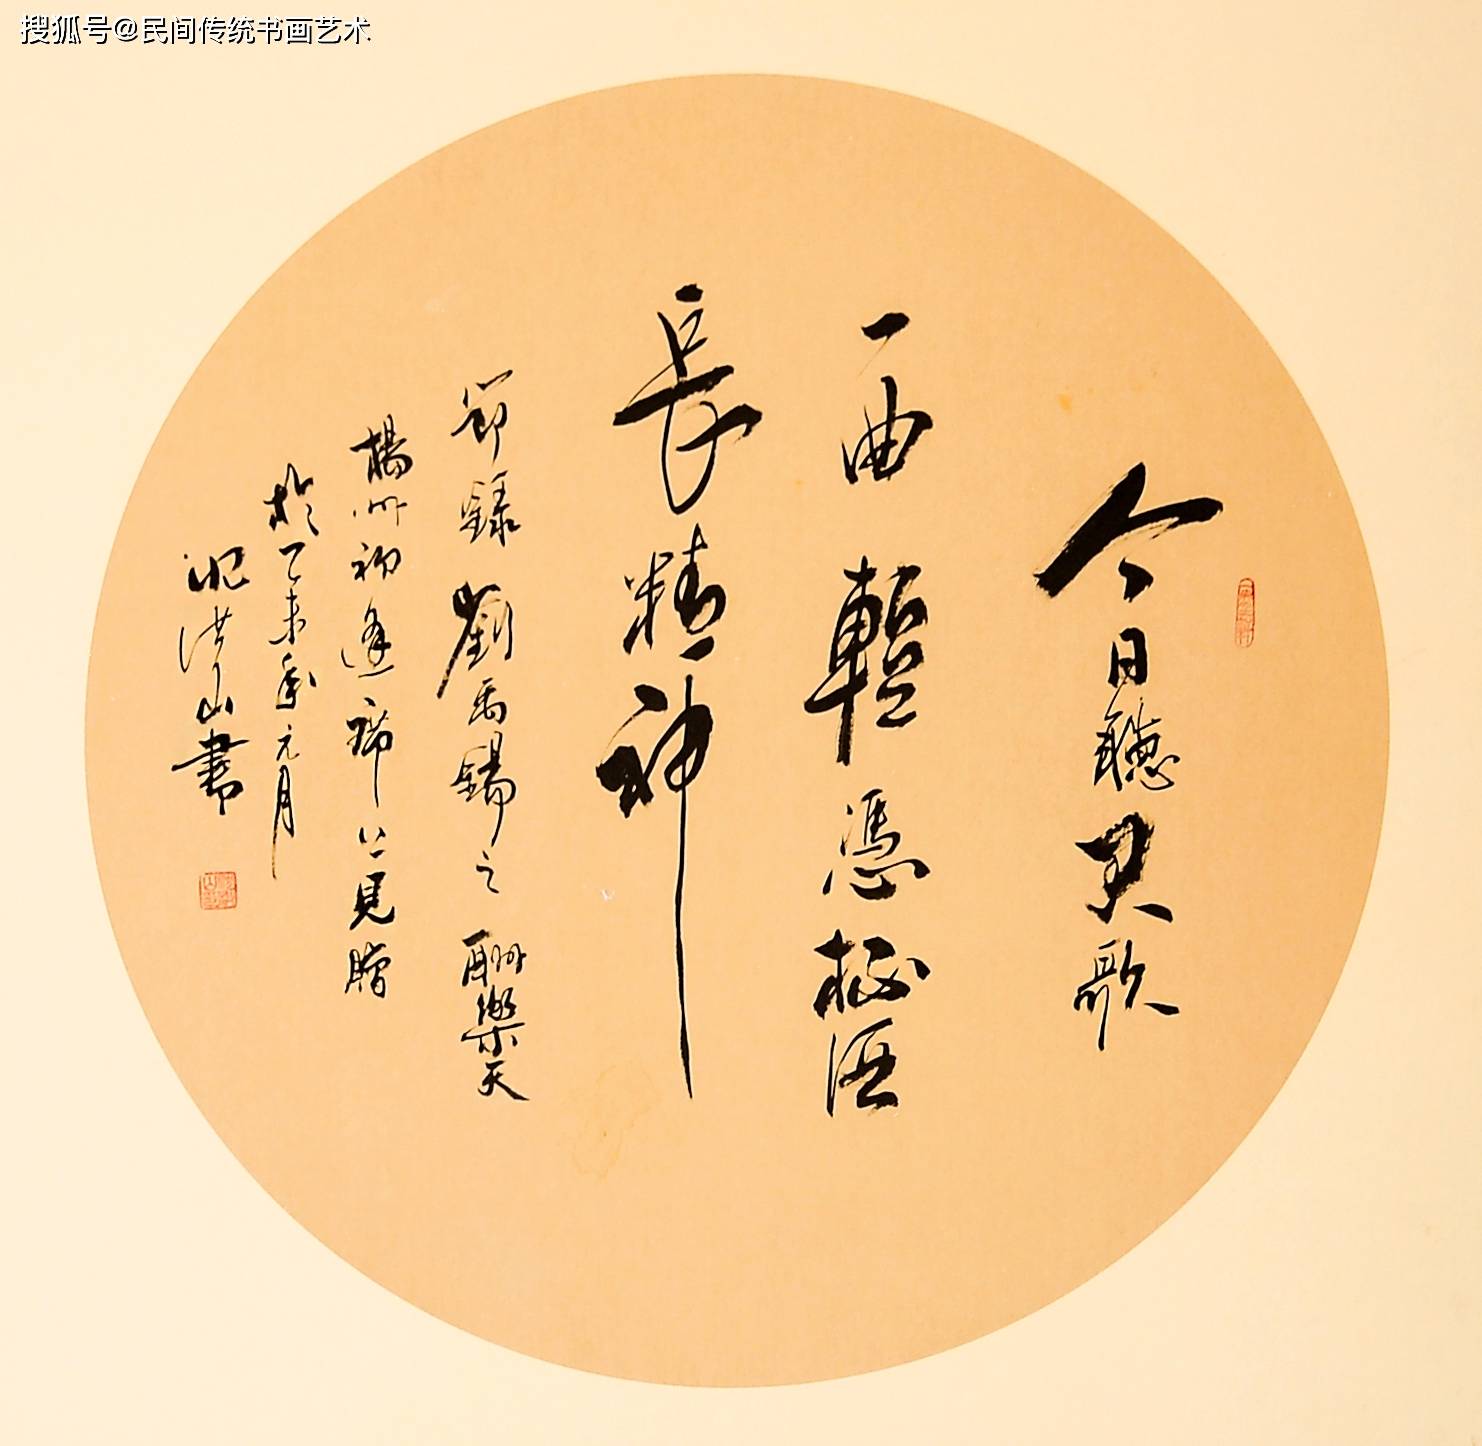 搜狐号@民间传统书画艺术
今日聽君歌
一曲暫憑杯酒
長精神
節錄劉禹錫之酬樂天
楊州初逢席上見贈
於乙未年元月
洪山書